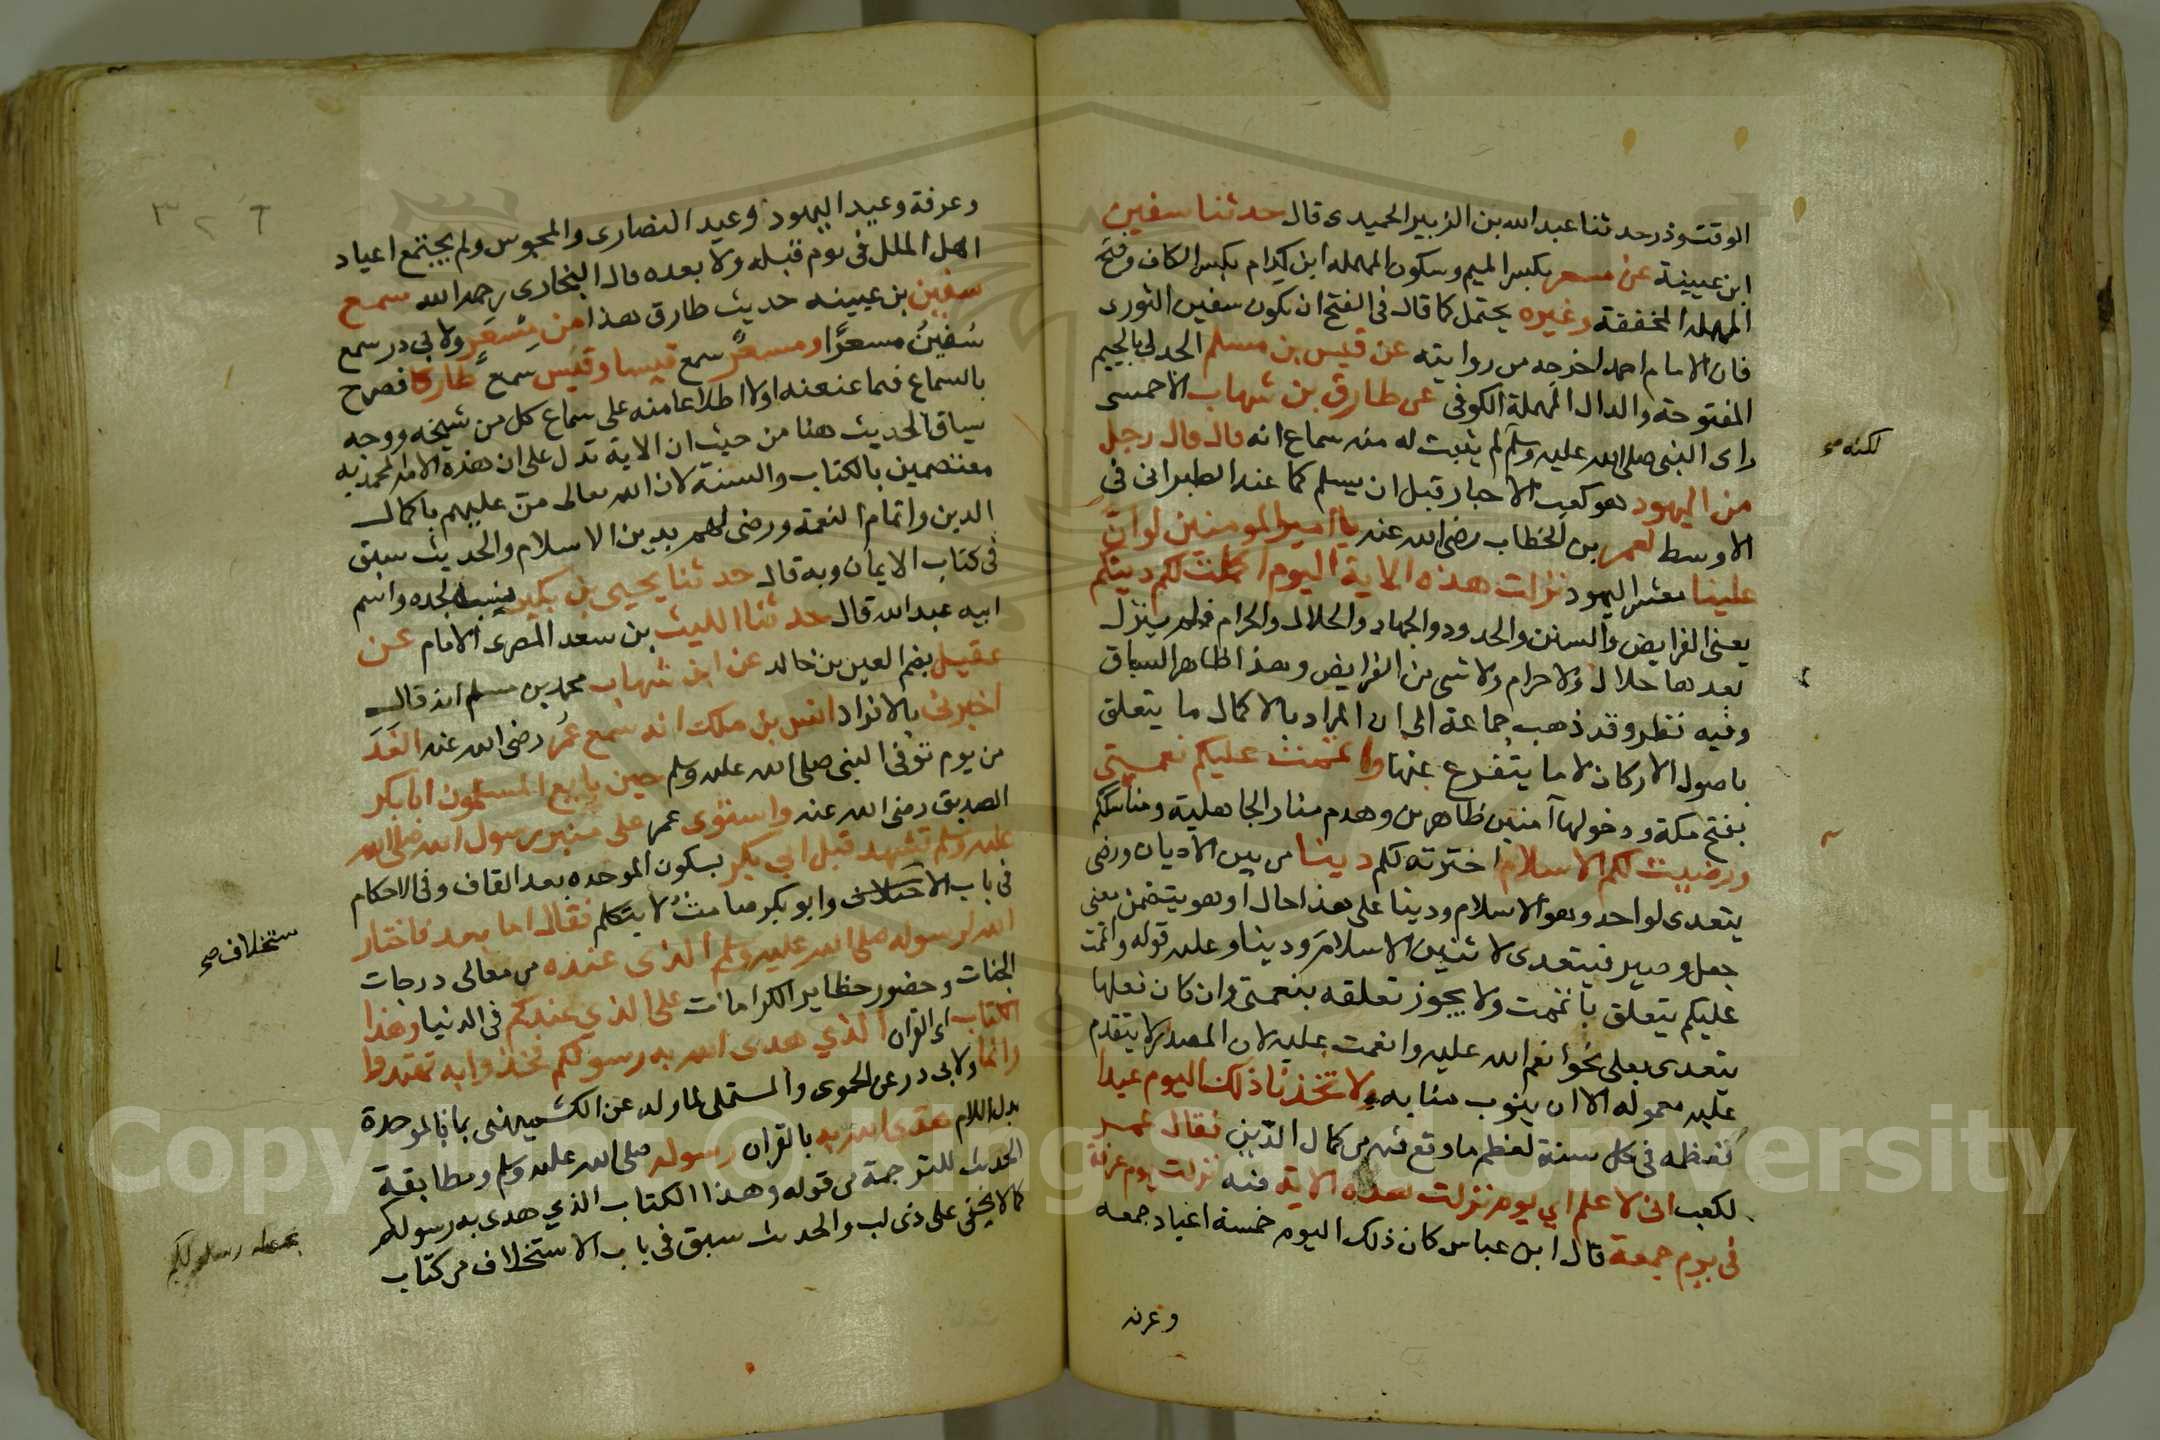 الوقت وذر حدثنا عبدالله بن الزبير الحميدى قال حدثنا سفين
ابن عيينة عن مسعر بكسر الميم وسكون المهمله ابن كدام بكسر الكاف وفتح
المهمله المخففة وغيره يحتمل كما قال فى الفتح ان يكون سفين الثورى
فان الامام احمد اخرجه من روايته عن قيس بن مسلم الجدلى بالجيم
المفتوحة والدال المهملة الكوفى عن طارق بن شهاب الاحمسى
راى النبى صلى الله عليه وسلم لم يثبت له منه سماع انه قال قال رجل
لكنه صح
من اليهود هو كعب الاحبار قبل ان يسلم كما عند الطبرانى فى
الاوسط لعمر بن الخطاب رضى الله عنه يا امير المومنين لو ان
علينا معشر اليهود نزلت هذه الاية اليوم اكملت لكم دينكم
يعنى الفرايض والسنن والحدود والجهاد والحلال والحرام فلم ينزل
بعدها حلال ولا حرام ولا شى من الفرايض وهذا ظاهر السياق
وفيه نظر وقد ذهب جماعة الى ان المراد بالاكمال ما يتعلق
باصول الاركان لا ما يتفرع عنها واتممت عليكم نعمتي
بفتح مكة ودخولها آمنين ظاهرين وهدم منار الجاهلية ومناسككم
ورضيت لكم الاسلام اخترته لكم دينا من بين الاديان ورضى
يتعدى لواحد وهو الاسلام ودينا على هذا حال او هو يتضمن معنى
جعل وصير فيتعدى لاثنين الاسلام ودينا وعليه قوله واتممت
عليكم يتعلق باتممت ولا يجوز تعلقه بنعمتى وان كان فعلها
يتعدى بعلى نحو انعم الله عليه وانعمت عليه لان المصدر لا يتقدم
عليه معموله الا ان ينوب منابه ولاتخذنا ذلك اليوم عيدا
نعظمه فى كل سنة لعظم ما وقع فيه من كمال الدين فقال عمر
لكعب انى لاعلم اي يوم نزلت هذه الاية فيه نزلت يوم عرفة
فى يوم جمعة قال ابن عباس كان ذلك اليوم خمسة اعياد جمعه
وعرفه
٣٢٦
وعرفة وعيد اليهود وعيد النصارى والمجوس ولم يجتمع اعياد
اهل الملل فى يوم قبله ولا بعده قال البخارى رحمه الله سمع
سفين بن عيينه حديث طارق هذا من مسعر ولابى ذر سمع
سفين مسعرا ومسعر سمع قيسا وقيس سمع طارقا فصرح
بالسماع فيما عنعنه اولا اطلاعا منه على سماع كل من شيخه ووجه
سياق الحديث هنا من حيث ان الاية تدل على ان هذه الامة المحمديه
معتصمين بالكتاب والسنة لان الله تعالى من عليهم باكمال
الدين واتمام النعمة ورضى لهم بدين الاسلام والحديث سبق
فى كتاب الايمان وبه قال حدثنا يحيى بن بكير نسبه لجده واسم
ابيه عبدالله قال حدثنا الليث بن سعد المصرى الامام عن
عقيل بضم العين بن خالد عن ابن شهاب محمد بن مسلم انه قال
اخبرنى بالافراد انس بن ملك انه سمع عمر رضى الله عنه الغد
من يوم توفى النبى صلى الله عليه وسلم حين بايع المسلمون ابا بكر
الصديق رضى الله عنه واستوى عمر على منبر رسول الله صلى الله
عليه وسلم تشهد قبل ابي بكر بسكون الموحده بعد القاف وفى الاحكام
فى باب الاختلاف وابو بكر صامت لا يتكلم فقال اما بعد فاختار
ستخلاف صح
الله لرسوله صلى الله عليه وسلم الذى عنده من معالى درجات
الجنات وحضور حظاير الكرامات على الذي عندكم فى الدنيا وهذا
الكتاب اى القران الذي هدى الله به رسولكم فخذوا به تهتدوا
وانما ولابى ذر عن الحموى والمستملى لما وله عن الكشميهنى بما بالموحدة
بدل اللام هدى الله به بالقران رسوله صلى الله عليه وسلم ومطابقة
الحديث للترجمة من قوله وهذا الكتاب الذي هدى به رسولكم
كما لا يخفى على ذى لب والحديث سبق فى باب الاستخلاف من كتاب
Copyright © King Saud University